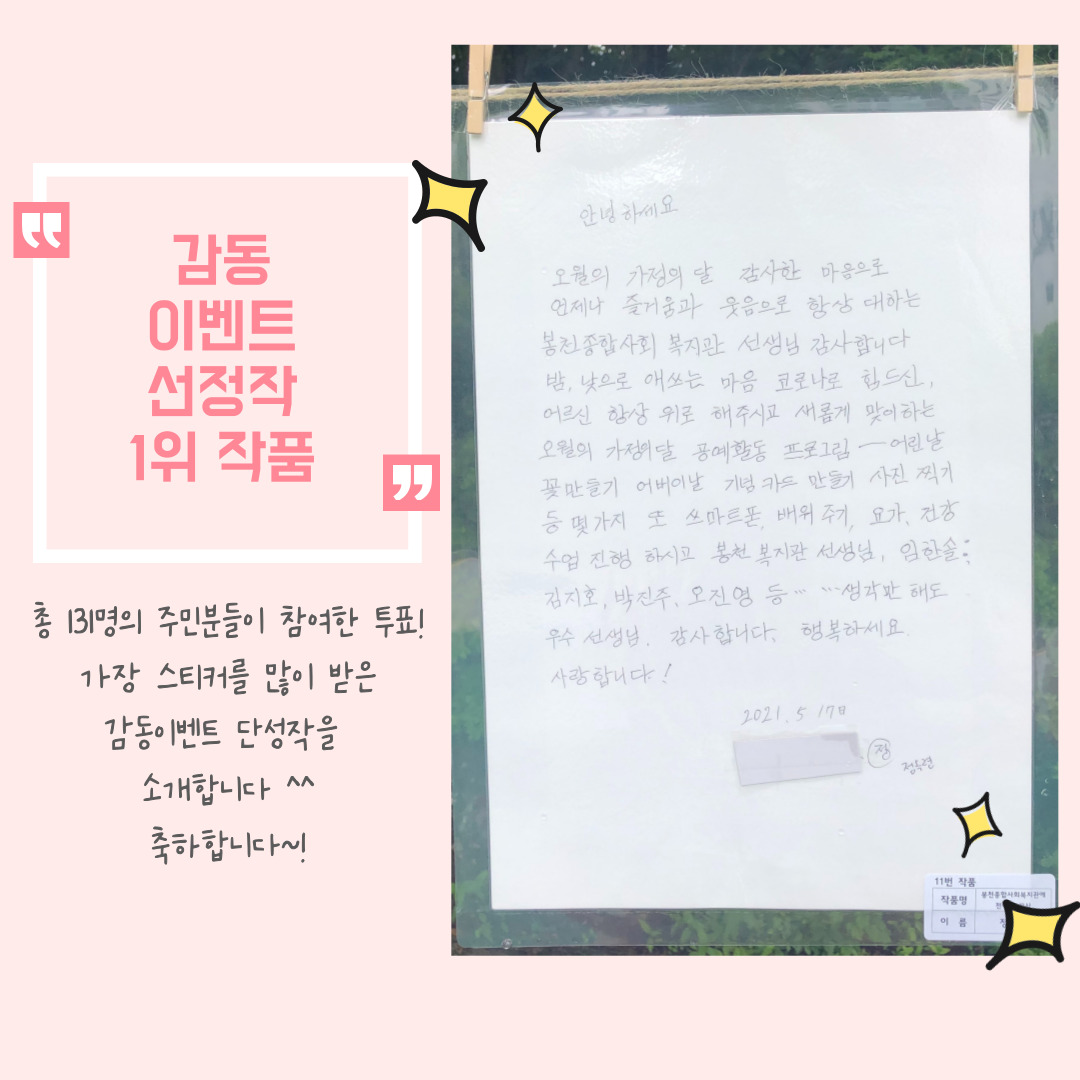 감동
이벤트
선정작
1위 작품
총 131명의 주민분들이 참여한 투표!
가장 스티커를 많이 받은
감동이벤트 단성작을
소개합니다 ^^
축하합니다~!
안녕하세요
오월의 가정의 달 감사한 마음으로
언제나 즐거움과 웃음으로 항상 대하는
봉천종합사회 복지관 선생님 감사합니다
밤, 낮으로 애쓰는 마음 코로나로 힘드신,
어르신 항상 위로 해주시고 새롭게 맞이하는
오월의 가정의달 공예활동 프로그림 — 어린날
꽃만들기 어버이날 기념카드 만들기 사진 찍기
등 몇가지 또 쓰마트폰, 배워주기, 요가, 건강
수업 진행 하시고 봉천 복지관 선생님, 임한솔:
김지호, 박진주, 오진영 등… …생각만 해도
우수 선생님, 감사합니다, 행복하세요
사랑합니다!
2021. 5 17일
11번 작품
작품명 봉천종합사회복지관에
이 름